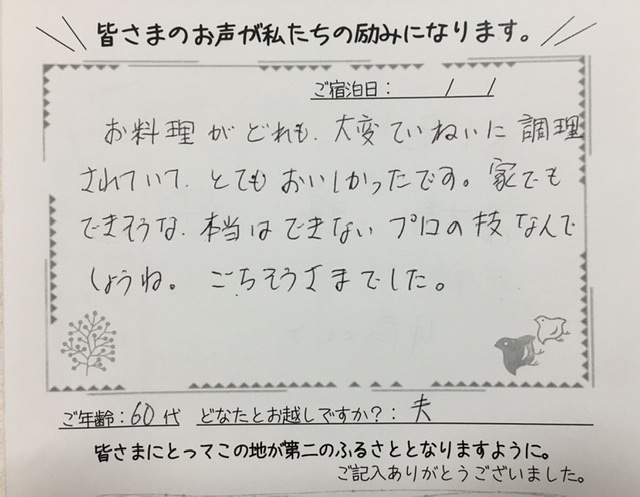 皆さまのお声が私たちの励みになります。
ご宿泊日: / /
お料理がどれも、大変ていねいに調理
されていて、とてもおいしかったです。家でも
できそうな、本当はできないプロの技なんで
しょうね。 ごちそうさまでした。
ご年齢:60代 どなたとお越しですか?:夫
皆さまにとってこの地が第二のふるさととなりますように。
ご記入ありがとうございました。